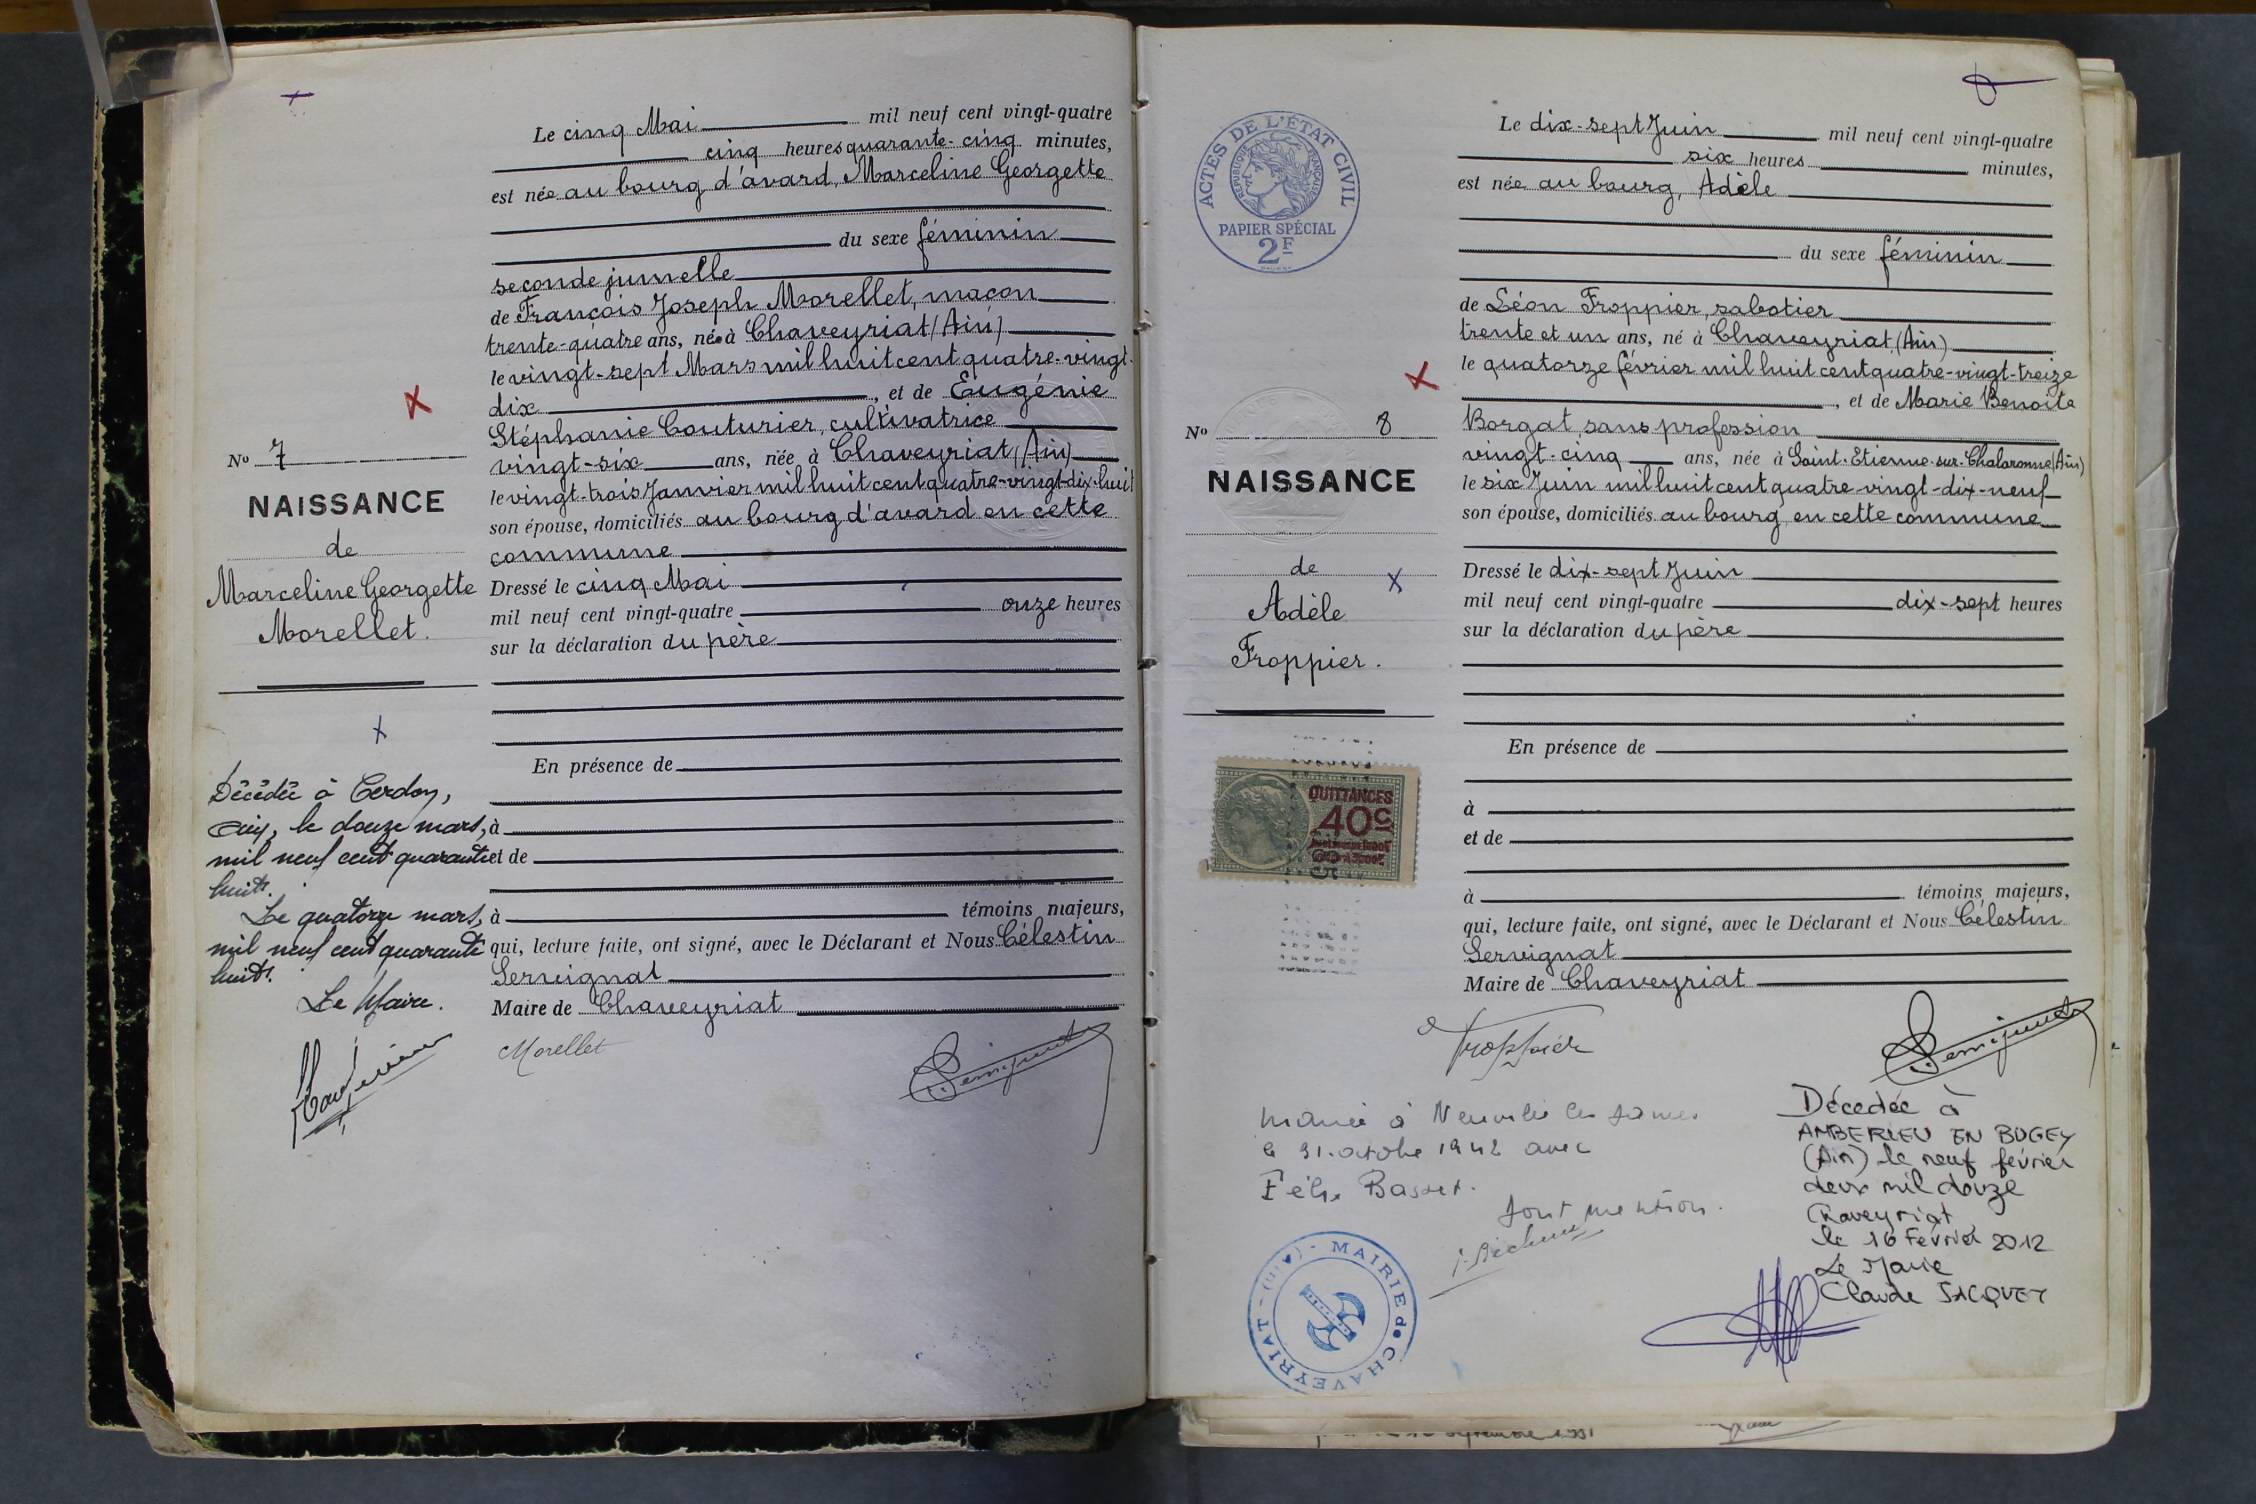 Le cinq Mai mil neuf cent vingt-quatre
cinq heures quarante-cinq minutes,
est née au bourg d'avard, Marceline Georgette
du sexe féminin
seconde jumelle
de François Joseph Morellet, maçon
trente-quatre ans, né à Chaveyriat (Ain)
le vingt-sept Mars mil huit cent quatre-vingt-
dix, et de Eugénie
Stéphanie Couturier, cultivatrice
vingt-six ans, née à Chaveyriat (Ain)
le vingt-trois Janvier mil huit cent quatre-vingt-dix-huit
son épouse, domiciliés au bourg d'avard en cette
commune
Dressé le cinq Mai
mil neuf cent vingt-quatre onze heures
sur la déclaration du père
En présence de
à
et de
à témoins majeurs,
qui, lecture faite, ont signé, avec le Déclarant et Nous Célestin
Servignat
Maire de Chaveyriat
Morellet
Servignat
No 7
NAISSANCE
de
Marceline Georgette
Morellet.
Décédée à Cerdon,
Ain, le douze mars,
mil neuf cent quarante
huit.
Le quatorze mars,
mil neuf cent quarante
huit.
Le Maire.
ACTES DE L'ÉTAT CIVIL
RÉPUBLIQUE FRANÇAISE
PAPIER SPÉCIAL
2F
No 8
NAISSANCE
de
Adèle
Froppier.
QUITTANCES
40c
Le dix-sept Juin mil neuf cent vingt-quatre
six heures minutes,
est née au bourg, Adèle
du sexe féminin
de Léon Froppier, sabotier
trente et un ans, né à Chaveyriat (Ain)
le quatorze février mil huit cent quatre-vingt-treize
, et de Marie Benoite
Borgat, sans profession
vingt-cinq ans, née à Saint-Etienne-sur-Chalaronne (Ain)
le six Juin mil huit cent quatre vingt-dix-neuf
son épouse, domiciliés au bourg, en cette commune
Dressé le dix-sept Juin
mil neuf cent vingt-quatre dix-sept heures
sur la déclaration du père
En présence de
à
et de
à témoins majeurs,
qui, lecture faite, ont signé, avec le Déclarant et Nous Célestin
Servignat
Maire de Chaveyriat
Froppier
Servignat
Mariée à Neuville les Dames
le 31 octobre 1942 avec
Félix Basset.
Dont mention.
MAIRIE de CHAVEYRIAT
Décedée à
AMBERIEU EN BUGEY
(Ain) le neuf février
deux mil douze
Chaveyriat
le 16 Février 2012
Le Maire
Claude JACQUET